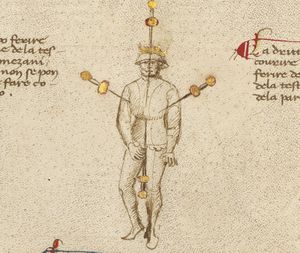 o ferire
e de la tes-
mezani.
non se pon
e fare co-
o.
La drita
courire
ferire de
dela test
dela par